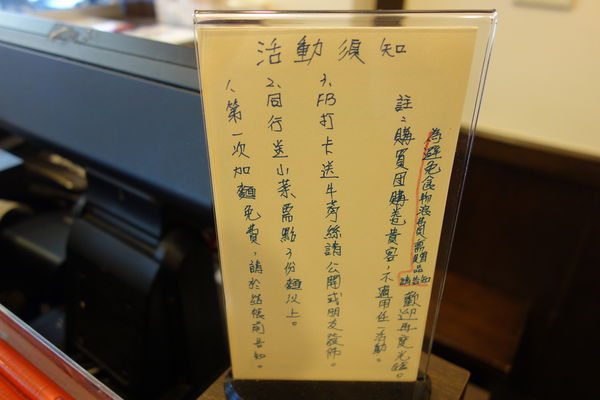 活動須知
1、第一次加麵免費,請於結帳前告知。
2、同行送小菜需點3份麵以上。
3、FB打卡送牛蒡絲請公開或朋友發佈。
註:購買團購卷貴客,不適用任一活動。
為避免食物浪費需
請告知
歡迎再度光臨。